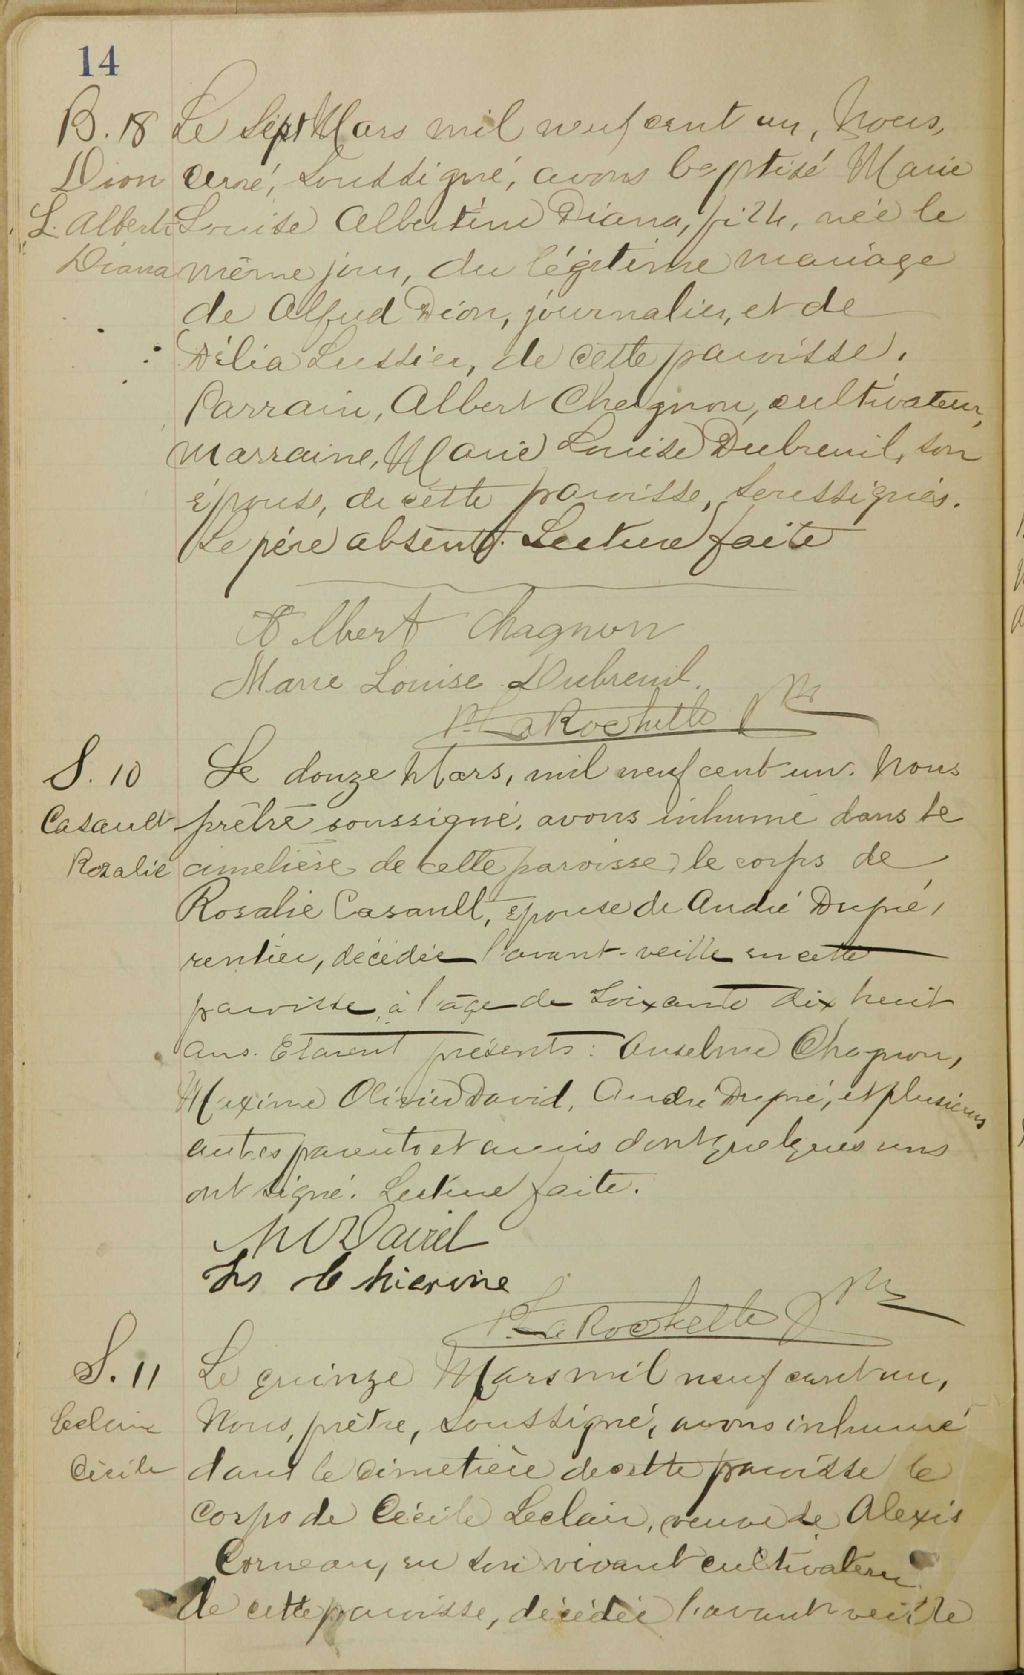 14
B. 18 Le Sept Mars mil neuf cent un, Nous,
Dion curé, soussigné, avons baptisé Marie
L. Alberti Louise Albertine Diana, fille, née le
Diana même jour, du légitime mariage
de Alfred Dion, journalier, et de
Délia Lussier, de cette paroisse.
Parrain, Albert Chagnon, cultivateur,
marraine, Marie Louise Dubreuil, son
épouse, de cette paroisse, soussignés.
Le père absent. Lecture faite
Albert Chagnon
Marie Louise Dubreuil.
P. LaRochelle Ptre
S. 10 Le douze Mars, mil neuf cent un. Nous
Casault prêtre soussigné, avons inhumé dans le
Rozalie cimetière de cette paroisse, le corps de
Rosalie Casault, épouse de André Dupré,
rentier, décédée l'avant-veille en cette
paroisse, à l'âge de soixante dix huit
ans. Etaient présents: Anselme Chagnon,
Maxime Olivier David, André Dupré, et plusieurs
autres parents et amis dont quelques uns
ont signé. Lecture faite.
M O David
P. LaRochelle Ptre
S. 11 Le quinze Mars mil neuf cent un,
Leclair Nous, prêtre, soussigné, avons inhumé
Cécile dans le cimetière de cette paroisse le
corps de Cécile Leclair, veuve de Alexis
Corneau, en son vivant cultivateur
de cette paroisse, décédée l'avant veille